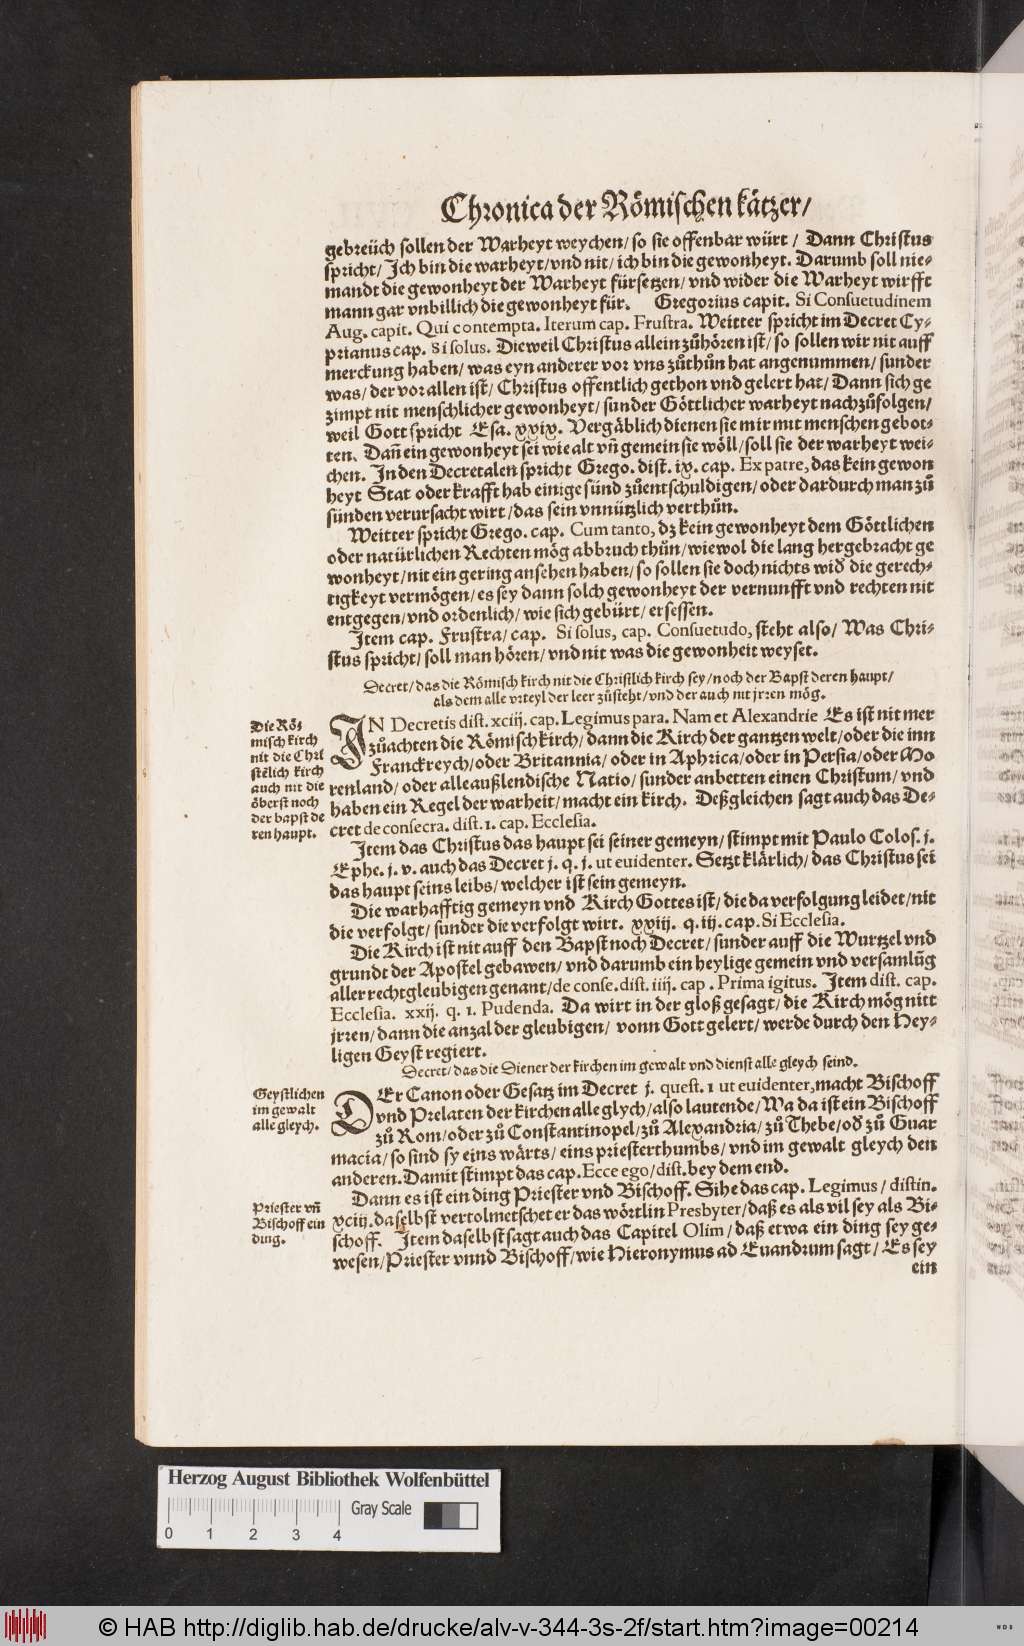 Chronica der Römischen kätzer/
gebreüch sollen der Warheyt weychen/ so sie offenbar würt / Dann Christus
spricht/ Ich bin die warheyt/vnd nit/ ich bin die gewonheyt. Darumb soll nie-
mandt die gewonheyt der Warheyt fürsetzen/ vnd wider die Warheyt wirfft
mann gar vnbillich die gewonheyt für. Gregorius capit. Si Consuetudinem
Aug. capit. Qui contempta. Iterum cap. Frustra. Weitter spricht im Decret Cy-
prianus cap. Si solus. Dieweil Christus allein zůhören ist/ so sollen wir nit auff
merckung haben/ was eyn anderer vor vns zůthůn hat angenummen/ sunder
was/ der vor allen ist/ Christus offentlich gethon vnd gelert hat/ Dann sich ge
zimpt nit menschlicher gewonheyt/ sunder Göttlicher warheyt nachzůfolgen/
weil Gott spricht Esa. xxix. Vergäblich dienen sie mir mit menschen gebot-
ten. Dañ ein gewonheyt sei wie alt vñ gemein sie wöll/ soll sie der warheyt wei-
chen. In den Decretalen spricht Grego. dist. ix. cap. Ex patre, das kein gewon
heyt Stat oder krafft hab einige sünd zůentschuldigen/ oder dardurch man zů
sünden verursacht wirt/ das sein vnnützlich verthůn.
Weitter spricht Grego. cap. Cum tanto, dz kein gewonheyt dem Göttlichen
oder natürlichen Rechten mög abbruch thůn/ wiewol die lang hergebracht ge
wonheyt/ nit ein gering ansehen haben/ so sollen sie doch nichts wid̕ die gerech-
tigkeyt vermögen/ es sey dann solch gewonheyt der vernunfft vnd rechten nit
entgegen/ vnd ordenlich/ wie sich gebürt/ ersessen.
Item cap. Frustra/ cap. Si solus, cap. Consuetudo, steht also/ Was Chri-
stus spricht/ soll man hören/ vnd nit was die gewonheit weyset.
Decret/ das die Römisch kirch nit die Christlich kirch sey/ noch der Bapst deren haupt/
als dem alle vrteyl der leer zůsteht/ vnd der auch nit jrren mög.
Die Rö-
misch kirch
nit die Chri
stelich kirch
auch nit die
öberst noch
der bapst de
ren haupt.
IN Decretis dist. xciij. cap. Legimus para. Nam et Alexandrie Es ist nit mer
zůachten die Römisch kirch/ dann die Kirch der gantzen welt/ oder die inn
Franckreych/ oder Britannia/ oder in Aphrica/ oder in Persia/ oder Mo
renland/ oder alle außlendische Natio/ sunder anbetten einen Christum/ vnd
haben ein Regel der warheit/ macht ein kirch. Deßgleichen sagt auch das De-
cret de consecra. dist. 1. cap. Ecclesia.
Item das Christus das haupt sei seiner gemeyn/ stimpt mit Paulo Colos. j.
Ephe. j. v. auch das Decret j. q. j. ut euidenter. Setzt klärlich/ das Christus sei
das haupt seins leibs/ welcher ist sein gemeyn.
Die warhafftig gemeyn vnd Kirch Gottes ist/ die da verfolgung leidet/ nit
die verfolgt/ sunder die verfolgt wirt. xxiij. q. iij. cap. Si Ecclesia.
Die Kirch ist nit auff den Bapst noch Decret/ sunder auff die Wurtzel vnd
grundt der Apostel gebawen/ vnd darumb ein heylige gemein vnd versamlūg
aller rechtgleubigen genant/ de conse. dist. iiij. cap . Prima igitus. Item dist. cap.
Ecclesia. xxij. q. 1. Pudenda. Da wirt in der gloß gesagt/ die Kirch mög nitt
jrren/ dann die anzal der gleubigen/ vonn Gott gelert/ werde durch den Hey-
ligen Geyst regiert.
Decret/ das die Diener der kirchen im gewalt vnd dienst alle gleych seind.
Geystlichen
im gewalt
alle gleych.
DEr Canon oder Gesatz im Decret j. quest. 1 ut euidenter, macht Bischoff
vnd Prelaten der kirchen alle glych/ also lautende/ Wa da ist ein Bischoff
zů Rom/ oder zů Constantinopel/ zů Alexandria/ zů Thebe/ od̕ zů Guar
macia/ so sind sy eins wärts/ eins priesterthumbs/ vnd im gewalt gleych den
anderen. Damit stimpt das cap. Ecce ego/ dist. bey dem end.
Priester vñ
Bischoff ein
ding.
Dann es ist ein ding Priester vnd Bischoff. Sihe das cap. Legimus / distin.
xciij. daselbst vertolmetschet er das wörtlin Presbyter/ daß es als vil sey als Bi-
schoff. Item daselbst sagt auch das Capitel Olim/ daß etwa ein ding sey ge-
wesen/ Priester vnnd Bischoff/ wie Hieronymus ad Euandrum sagt/ Es sey
ein
Herzog August Bibliothek Wolfenbüttel
Gray Scale
0 1 2 3 4
© HAB http://diglib.hab.de/drucke/alv-v-344-3s-2f/start.htm?image=00214